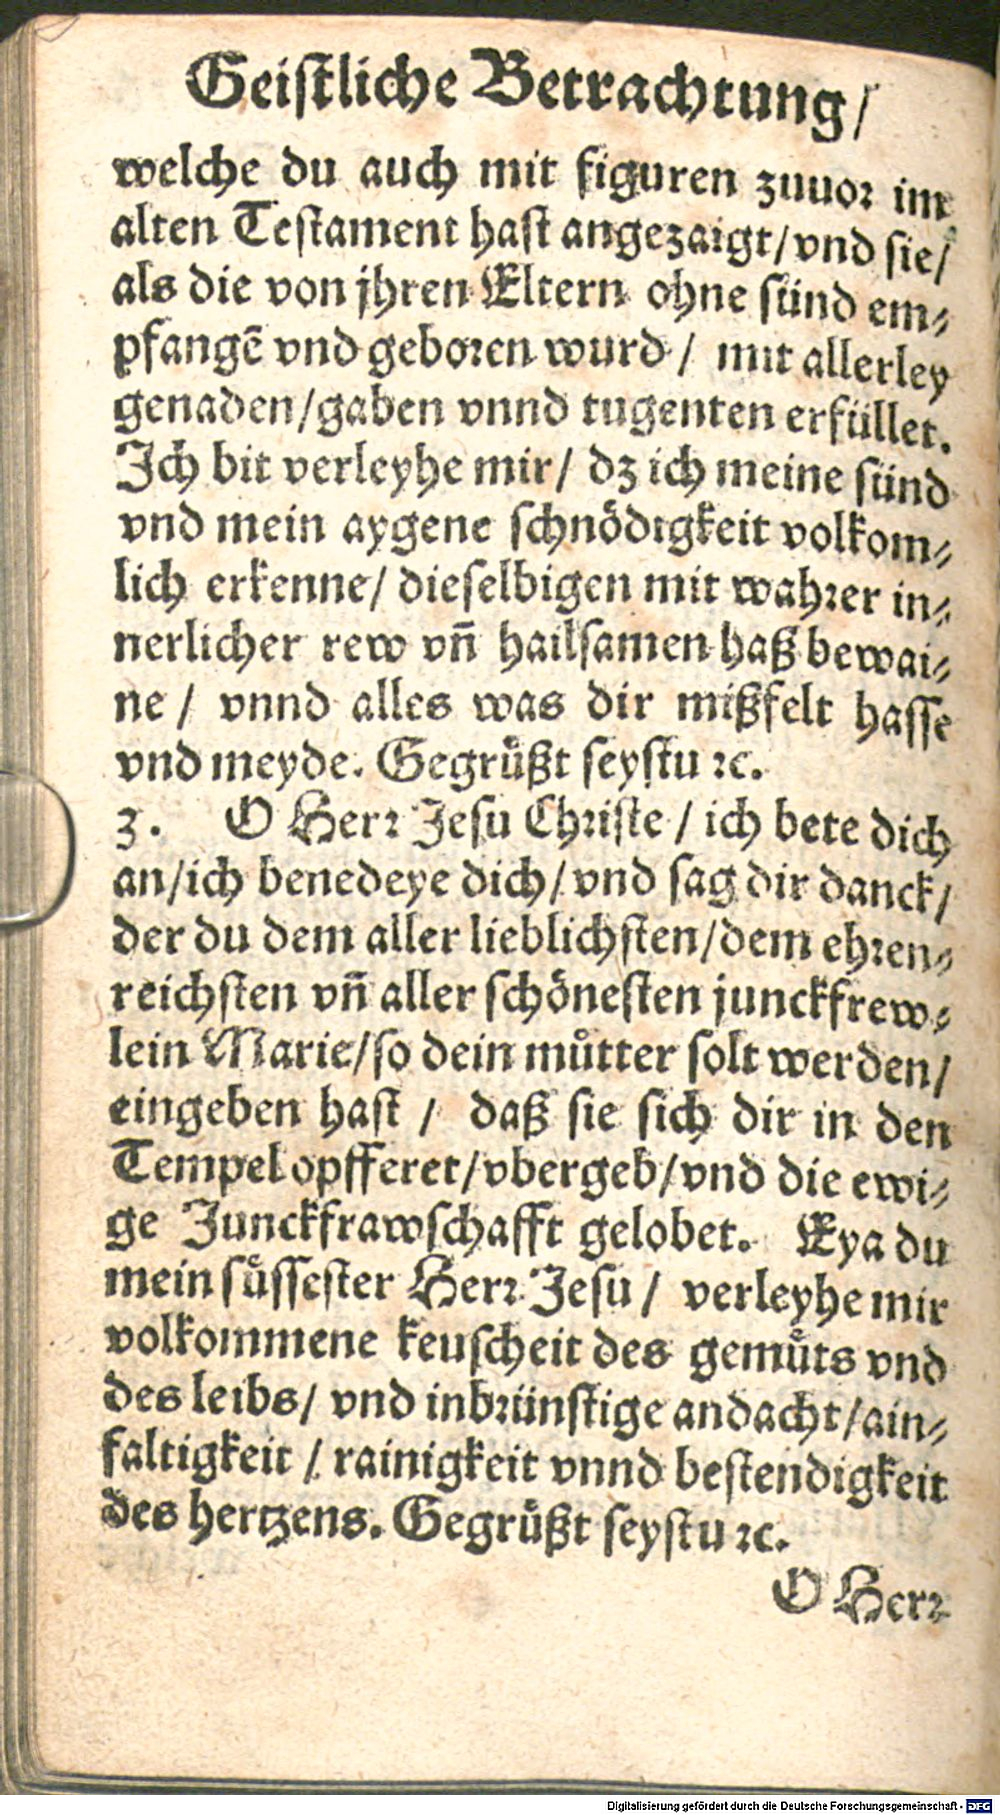 Geiſtliche Betrachtung/
welche du auch mit figuren zuuor im
alten Teſtament haſt angezaigt/vnd ſie/
als die von jhren Eltern ohne ſünd em⸗
pfangẽ vnd geboren wurd / mit allerley
genaden/gaben vnnd tugenten erfüllet.
Ich bit verleyhe mir/ dz ich meine ſünd
vnd mein aygene ſchnödigkeit volkom⸗
lich erkenne/ dieſelbigen mit wahrer in⸗
nerlicher rew vñ hailſamen haß bewai⸗
ne / vnnd alles was dir mißfelt haſſe
vnd meyde. Gegrüßt ſeyſtu ꝛc.
3. O Herr Jeſu Chriſte / ich bete dich
an/ich benedeye dich/ vnd ſag dir danck/
der du dem aller lieblichſten/dem ehren⸗
reichſten vñ aller ſchöneſten junckfrew⸗
lein Marie/ſo dein můtter ſolt werden/
eingeben haſt / daß ſie ſich dir in den
Tempel opfferet/vbergeb/vnd die ewi⸗
ge Junckfrawſchafft gelobet. Eya du
mein ſüſſeſter Herr Jeſu / verleyhe mir
volkommene keuſcheit des gemüts vnd
des leibs/ vnd inbrünſtige andacht/ain⸗
faltigkeit / rainigkeit vnnd beſtendigkeit
des hertzens. Gegrüßt ſeyſtu ꝛc.
O Herr
Digitalisierung gefördert durch die Deutsche Forschungsgemeinschaft - DFG